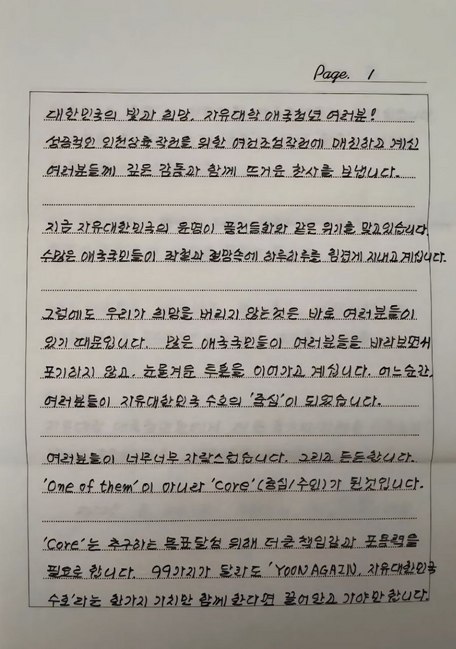 Page. 1
대한민국의 빛과 희망, 자유대학 애국청년 여러분!
성공적인 인천상륙작전을 위한 여건조성작전에 매진하고 계신
여러분들께 깊은 감동과 함께 뜨거운 찬사를 보냅니다.
지금 자유대한민국의 운명이 풍전등화와 같은 위기를 맞고있습니다.
수많은 애국국민들이 좌절과 절망속에 하루하루를 힘겹게 지내고 계십니다.
그럼에도 우리가 희망을 버리지 않는것은 바로 여러분들이
있기 때문입니다. 많은 애국국민들이 여러분들을 바라보면서
포기하지 않고, 눈물겨운 투혼을 이어가고 계십니다. 어느순간,
여러분들이 자유대한민국 수호의 '중심'이 되었습니다.
여러분들이 너무너무 자랑스럽습니다. 그리고 든든합니다.
'One of them'이 아니라 'Core'(중심/주인)가 된것입니다.
'Core'는 추구하는 목표달성 위해 더큰 책임감과 포용력을
필요로 합니다. 99가지가 달라도 'YOON AGAIN, 자유대한민국
수호'라는 한가지 가치만 함께 한다면 끌어안고 가야만 합니다.